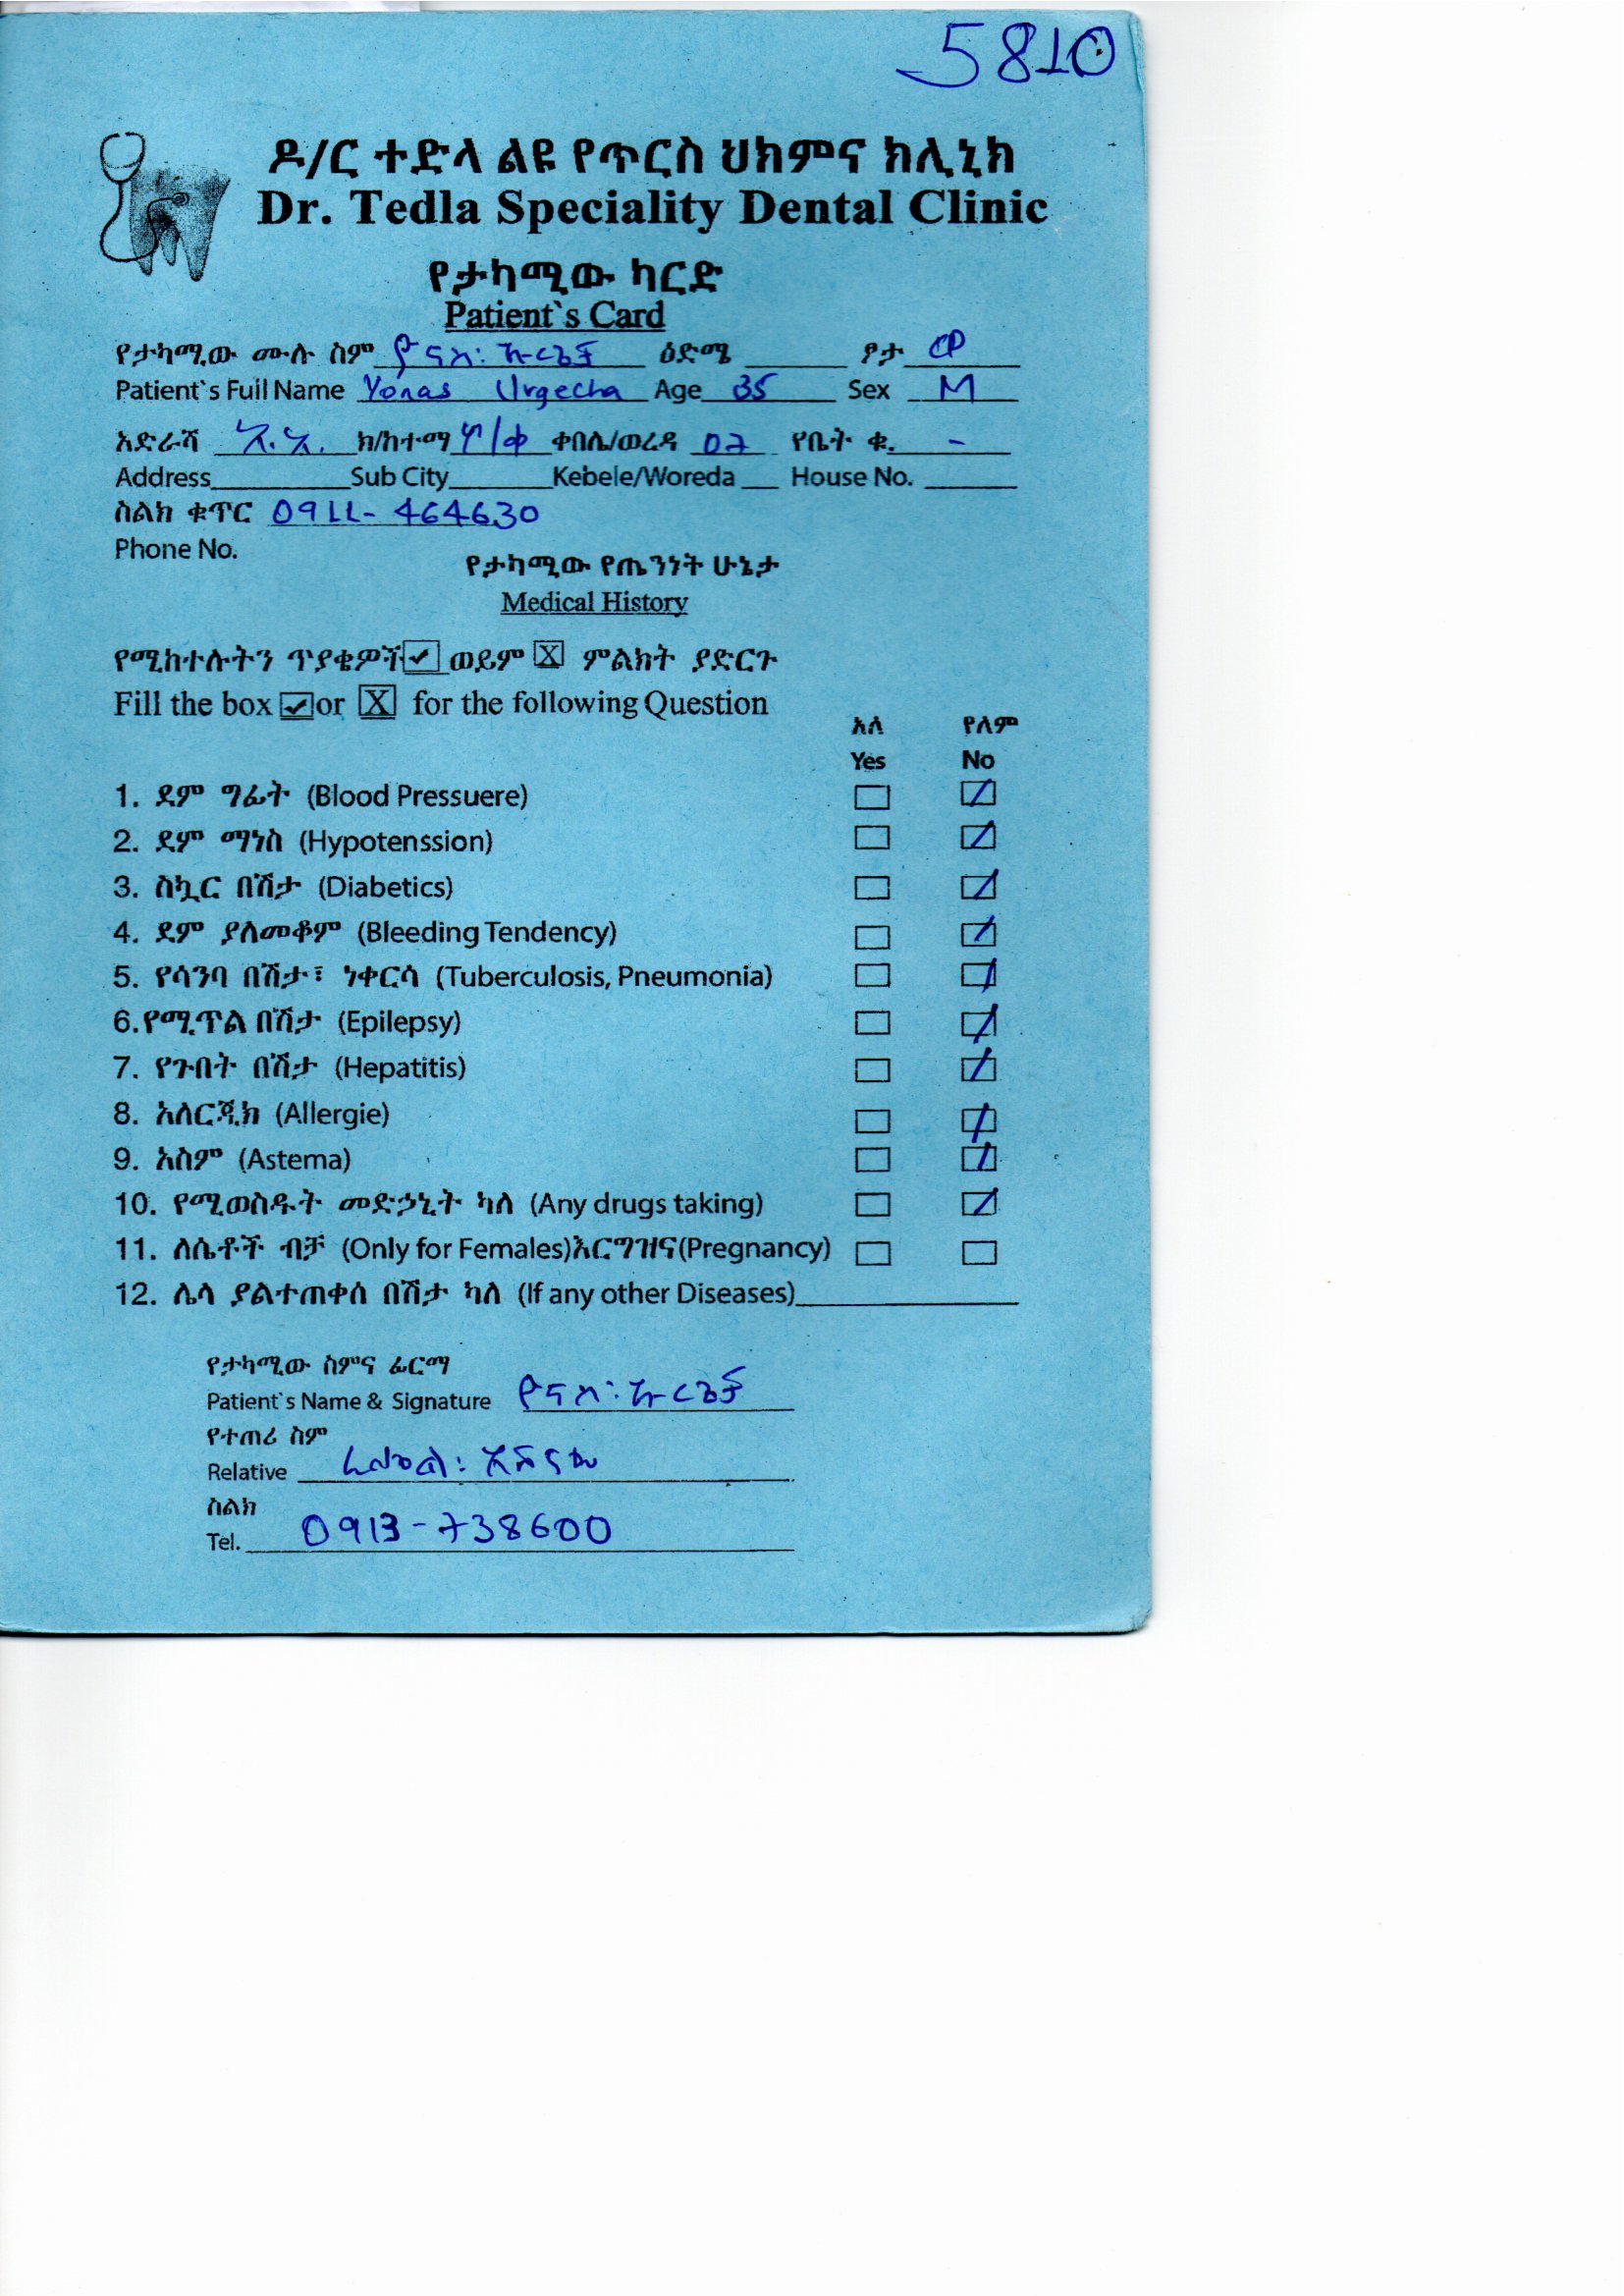 5810
ዶ/ር ተድላ ልዩ የጥርስ ህክምና ክሊኒክ
Dr. Tedla Speciality Dental Clinic
የታካሚው ካርድ
Patient`s Card
የታካሚው ሙሉ ስም ዮናስ፡ ኡርጌቻ ዕድሜ ፆታ ወ
Patient`s Full Name Yonas Urgecha Age 35 Sex M
አድራሻ አ.አ. ክ/ከተማ ቀበሌ/ወረዳ 02 የቤት ቁ. -
Address Sub City Kebele/Woreda House No.
ስልክ ቁጥር 0911-464630
Phone No.
የታካሚው የጤንነት ሁኔታ
Medical History
የሚከተሉትን ጥያቄዎች ወይም X ምልክት ያድርጉ
Fill the box or X for the following Question
አለ የለም
Yes No
1. ደም ግፊት (Blood Pressuere)
2. ደም ማነስ (Hypotenssion)
3. ስኳር በሽታ (Diabetics)
4. ደም ያለመቆም (Bleeding Tendency)
5. የሳንባ በሽታ፣ ነቀርሳ (Tuberculosis, Pneumonia)
6.የሚጥል በሽታ (Epilepsy)
7. የጉበት በሽታ (Hepatitis)
8. አለርጂክ (Allergie)
9. አስም (Astema)
10. የሚወስዱት መድኃኒት ካለ (Any drugs taking)
11. ለሴቶች ብቻ (Only for Females)እርግዝና(Pregnancy)
12. ሌላ ያልተጠቀሰ በሽታ ካለ (If any other Diseases)
የታካሚው ስምና ፊርማ
Patient`s Name & Signature ዮናስ፡ ኡርጌቻ
የተጠሪ ስም
Relative
ስልክ
Tel. 0913-738600